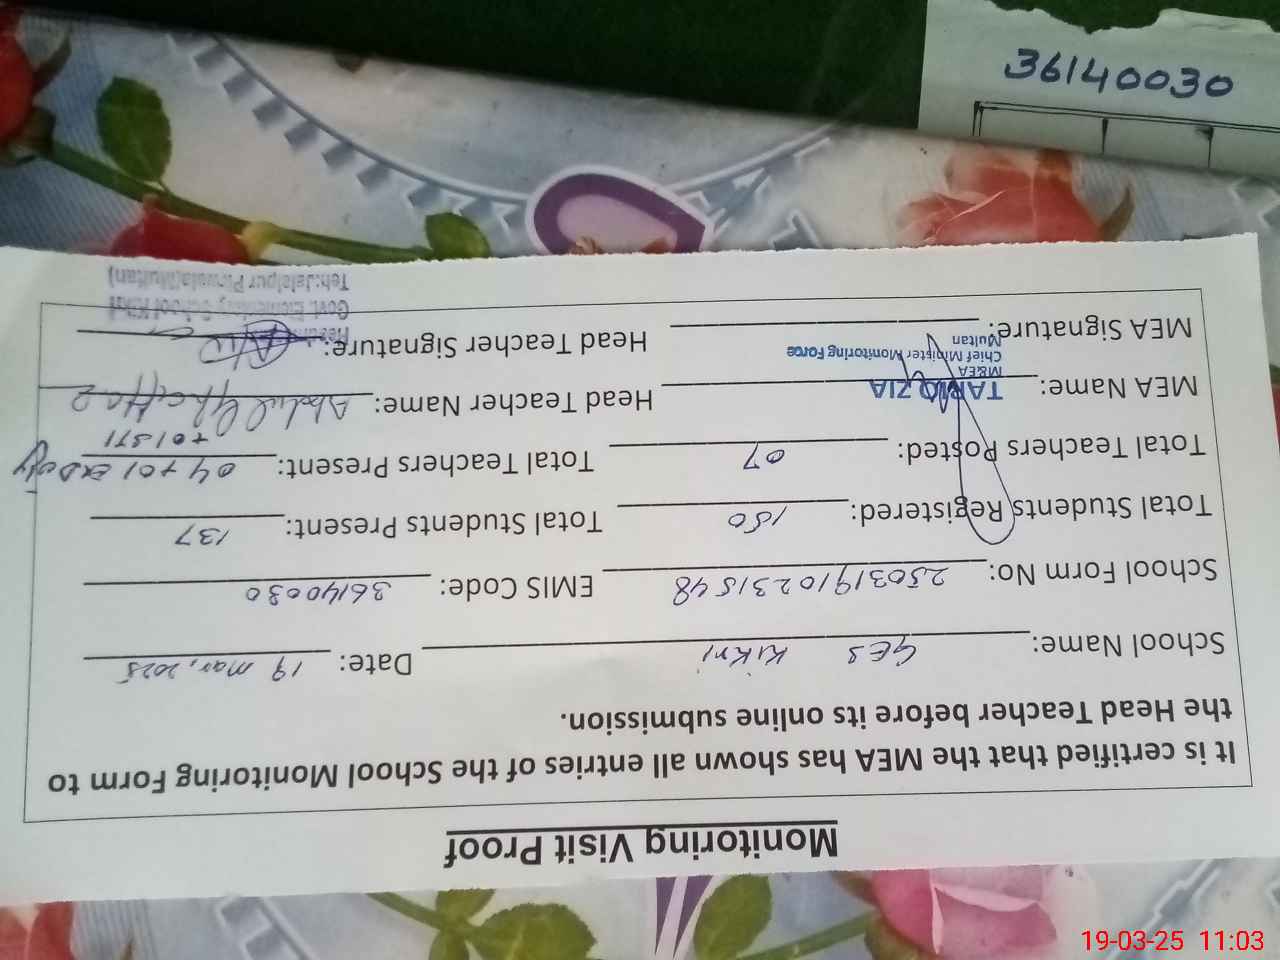 36140030
Monitoring Visit Proof
It is certified that the MEA has shown all entries of the School Monitoring Form to
the Head Teacher before its online submission.
School Name: GES Kikri Date: 19 Mar, 2025
School Form No: 25031910231548 EMIS Code: 36140030
Total Students Registered: 150 Total Students Present: 137
Total Teachers Posted: 07 Total Teachers Present: 04+01
MEA Name: TARIQ ZIA Head Teacher Name: Abdul
M&EA
Chief Minister Monitoring Force
Multan
MEA Signature: Head Teacher Signature:
Govt. Elementary School Kikri
Teh:Jalalpur Pirwala(Multan)
19-03-25 11:03